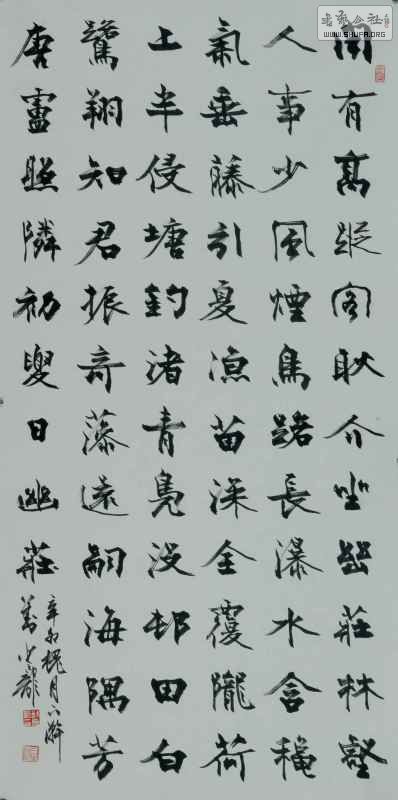 聞有高蹤客耿介坐幽莊林壑
人事少風煙鳥路長瀑水含穐
氣垂藤引夏涼苗深全覆隴荷
上半侵塘釣渚青鳧沒邨田白
鷺翔知君振奇藻還嗣海隅芳
唐盧照隣初夏日幽莊
辛卯槐月下澣
WWW.SHUFA.ORG